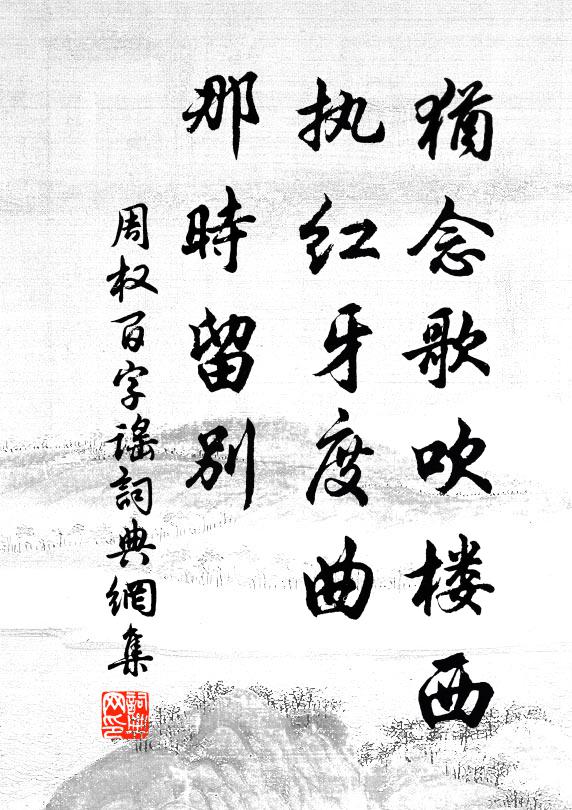 猶念歌吹楼西
执红牙度曲
那時留别
周权百字谣詞典網集